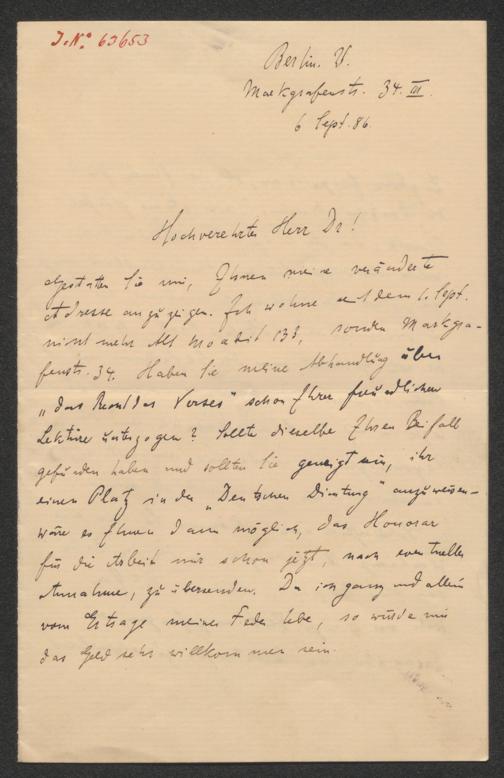 J. No 63653
Berlin. W.
Markgrafenstr. 34. III.
6 Sept. 86.
Hochverehrter Herr Dr!
Gestatten Sie mir, Ihnen meine veränderte
Adresse anzuzeigen. Ich wohne seit dem 1. Sept.
nicht mehr Alt Moabit 133, sondern Markgra-
fenstr. 34. Haben Sie meine Abhandlung über
„das Recht des Verses" schon Ihrer freundlichen
Lektüre unterzogen? Sollte dieselbe Ihren Beifall
gefunden haben und sollten Sie geneigt sein, ihr
einen Platz in der „Deutschen Dichtung" anzuweisen–
wäre es Ihnen dann möglich, das Honorar
für die Arbeit mir schon jetzt, nach eventueller
Annahme, zu übersenden. Da ich ganz und allein
vom Ertrage meiner Feder lebe, so würde mir
das Geld sehr willkommen sein.